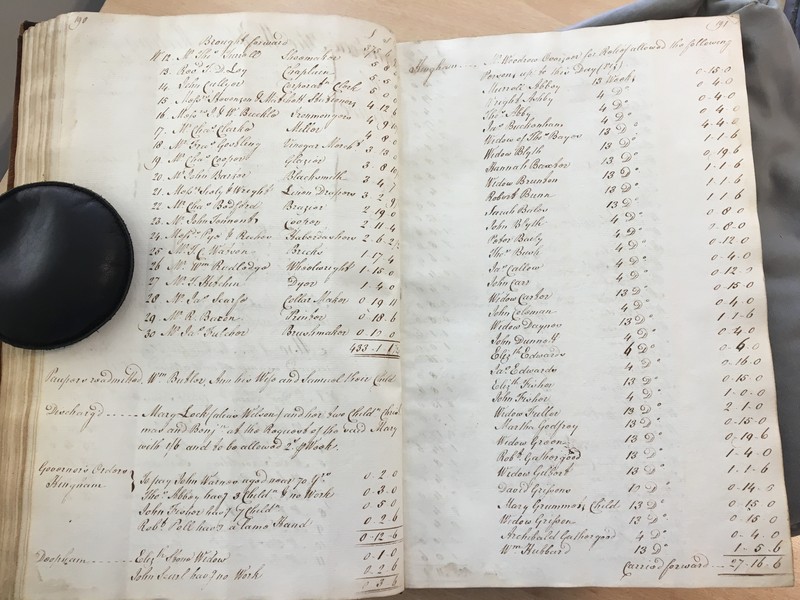 190
Brought forward
No 12 Mr Thos Turrell Shoemaker
13. Revd T. D. Loy Chaplain 5 5 0
14. John Cullyer Corporal Clerk 5 0 0
15. Messrs Stevenson & Mitchell Stationers 4 12 6
16. Messrs J & W Brettle Ironmongers
17. Mr Chas Clarke Miller 4 8 0
18. Mr Fras Gostling Vinegar Mercht 3 13
19. Mr Chas Cooper Glazier 3 8
20. Mr John Barker Blacksmith 3 4 7
21. Messrs & Wright Linen Drapers 3 2
22. Mr Chas Bedford Brazier 2 19 0
23. Mr John Cooper 2 11 4
24. Messrs Pye & Haberdashers 2 6
25. Mr T. C. Warren Bricks 1 17 4
26 Mr Wm Rutledge Wheelwright 1 15 0
27 Mr T. Dyer 1 4 0
28 Mr Jas Scarfe Collar Maker 0 19 11
29 Mr R. Bacon Printer 0 18 6
30 Mr Jas Fulcher Brushmaker 0
433 1
Paupers readmitted, Wm Butler, Ann his Wife and Samuel their Child
Discharged Mary Lock (alias Wilson) and her two Childn
and Benjn at the Request of the said Mary
with 1/6 and to be allowed 2/ ⅌ Week
Governor's Orders
Hingham
To pay John Warner aged near 70 Yrs 0 2 0
Thos Abboy has 3 Childn & no Work 0 3 0
John Fisher has 7 Childn 0 5 0
Robt Poll has a lame Hand 0 2 6
0 12 6
Deopham Elizth Stone Widow 0 1 0
John Searl has no Work 0 2 6
0 3 6
191
Hingham Mr Woodrow Overseer for Relief allowed the following
Persons up to this Day (Vizt)
Abboy 13 Weeks 0 15 0
Wright Ashby 4 Do 0 4 0
Thos Abby 4 Do 0 4 0
Jas Buckenham 4 Do 0 4 0
Widow of Thos Bayes 13 Do 4 4 0
Widow Blyth 13 Do 1 1 6
Hannah 13 Do 0 19 6
Widow Brunton 13 Do 1 1 6
Robert Bunn 13 Do 1 1 6
Bales 13 Do 1 1 6
John Blyth 4 Do 0 8 0
Peter Baily 4 Do 0 8 0
Thos Bush 4 Do 0 12 0
Jas Callow 4 Do 0 4 0
John Carr 4 Do 0 12 0
Widow Carter 13 Do 0 15 0
John Coleman 4 Do 0 4 0
Widow Daynes 13 Do 1 1 6
John Dunnett 4 Do 0 4 0
Elizth Edwards 4 Do 0 6 0
Jas Edwards 4 Do 0 16 0
Elizth Fisher 13 Do 0 15 0
John Fisher 4 Do 1 0 0
Widow Fuller 13 Do 2 1 0
Martha Godfrey 13 Do 0 15 0
Widow Green 13 Do 0 19 6
Robt Gathergood 13 Do 1 4 0
Widow Gilbert 13 Do 1 1 6
David Do 0 14 6
Mary Grummers Child 13 Do 0 15 0
Widow 13 Do 0 15 0
Archibald Gathergood 4 Do 0 4 0
Wm Hubbard 13 Do 1 5 6
Carried forward 27 16 6